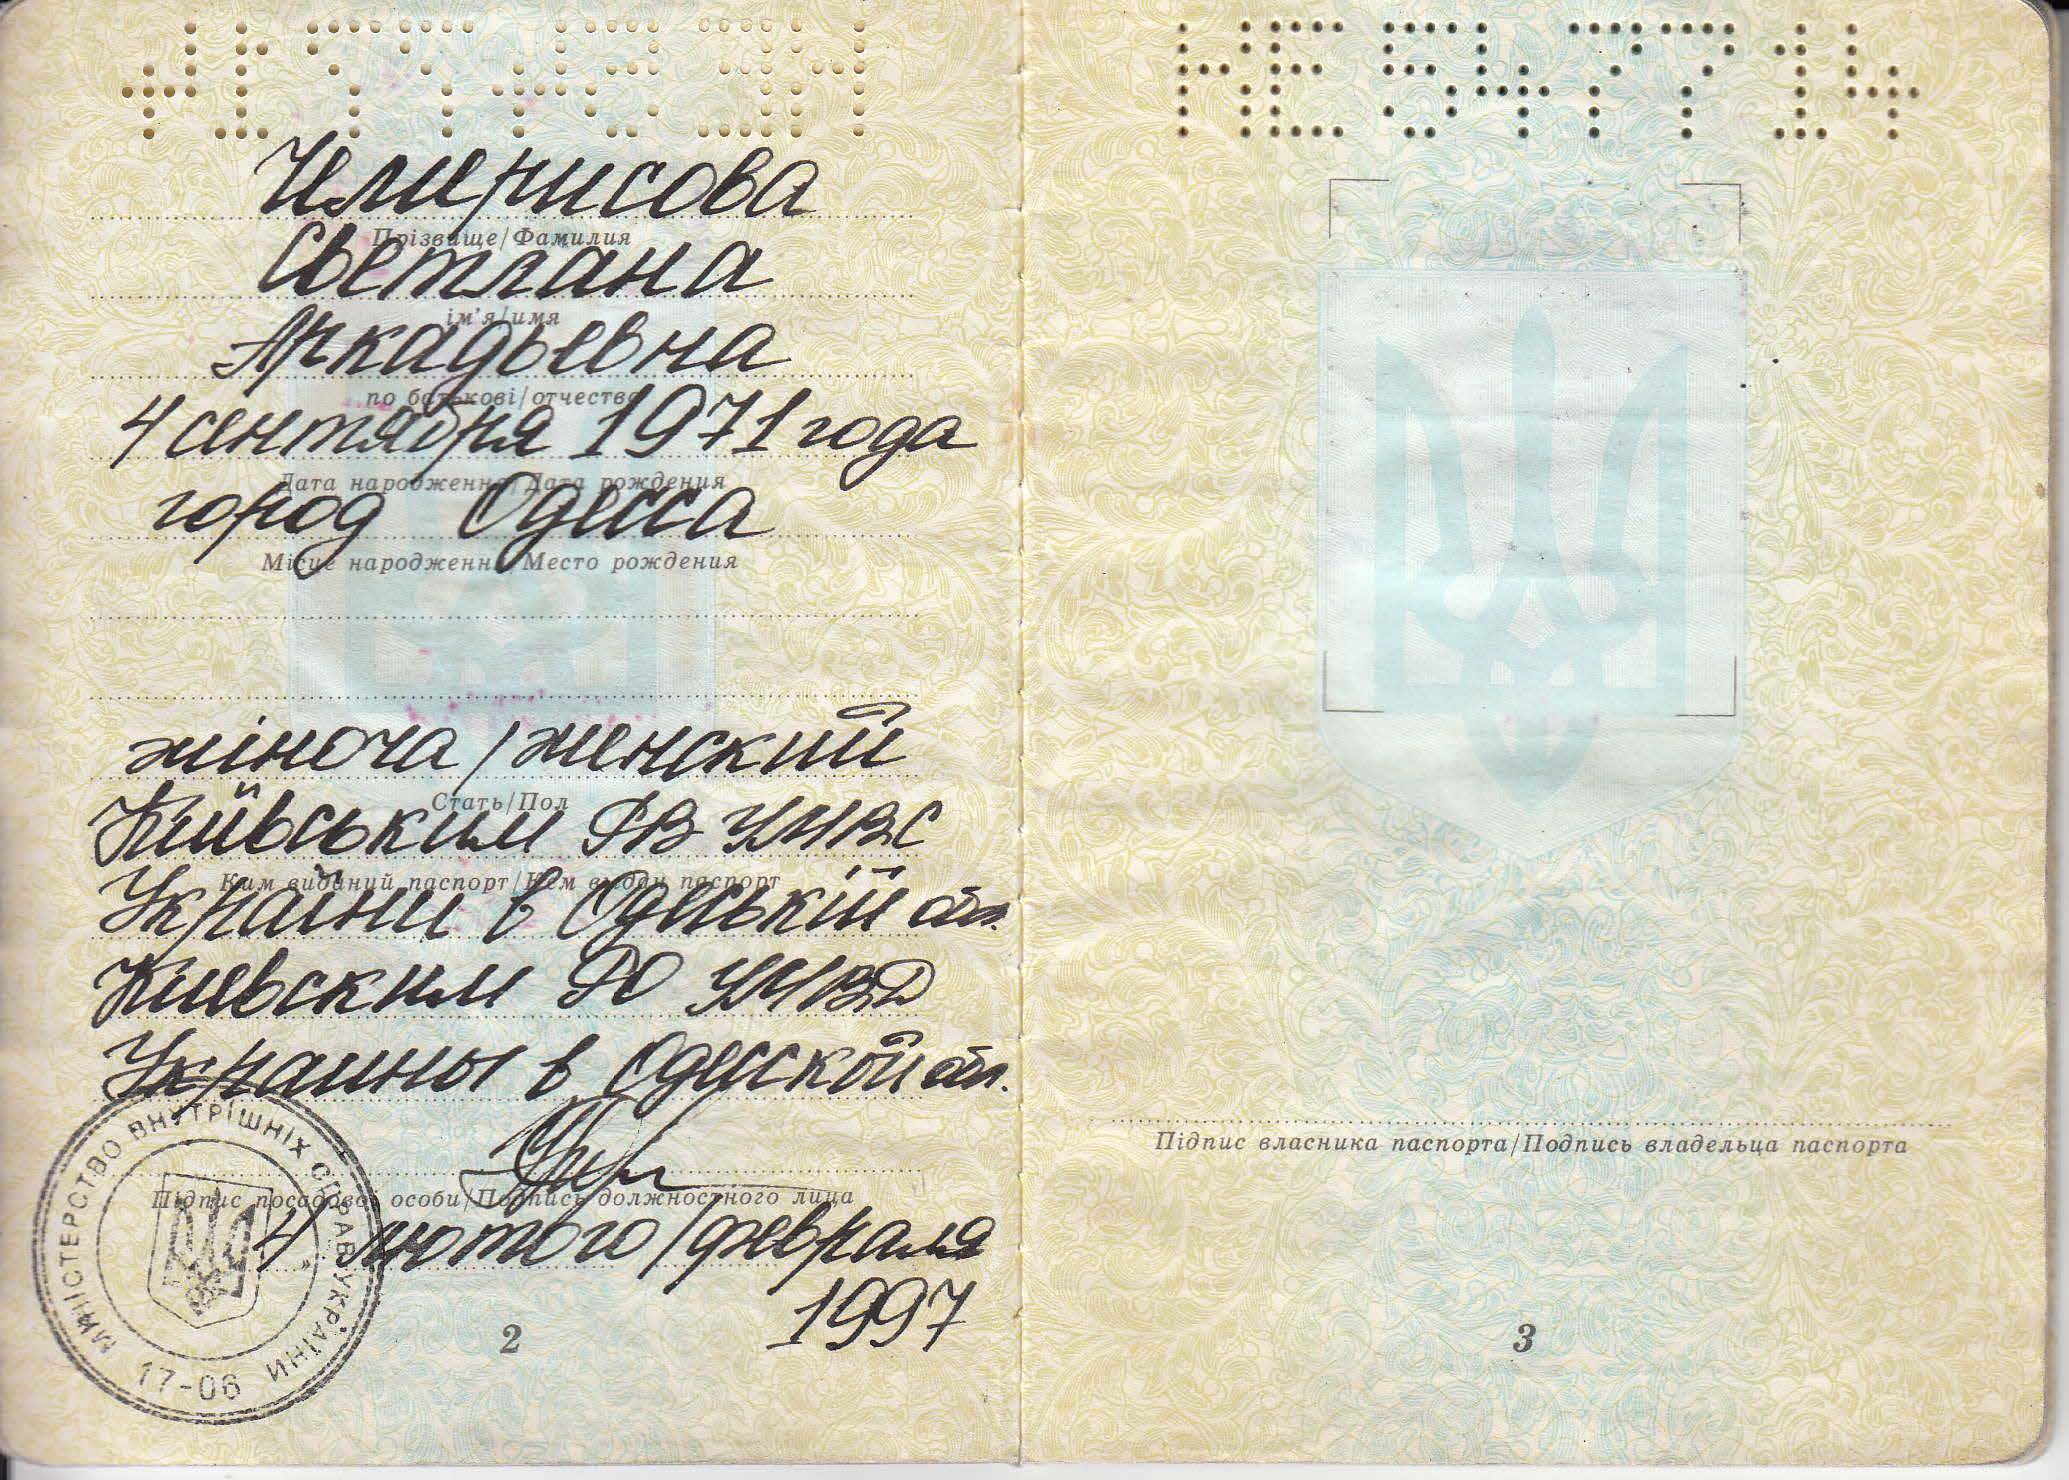 НЕ 547714
Чемирисова
Прізвище/Фамилия
Светлана
ім'я/имя
Аркадьевна
по батькові/отчество
4 сентября 1971 года
Дата народження/Дата рождения
город Одесса
Місце народження/Место рождения
жіноча/женский
Стать/Пол
Київським РВ УМВС
Ким виданий паспорт/Кем выдан паспорт
України в Одеській обл.
Киевским РО УМВД
Украины в Одесской обл.
Підпис посадової особи/Подпись должностного лица
4 лютого/февраля
1997
МІНІСТЕРСТВО ВНУТРІШНІХ СПРАВ УКРАЇНИ
17-06
2
Підпис власника паспорта/Подпись владельца паспорта
3